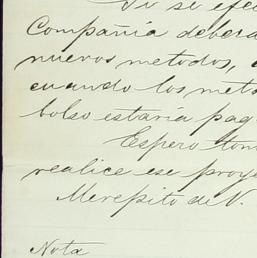 Si se efec
Compañía deberá
nuevos metodos,
cuando los meto
bolso estaria pag
Espero tom
realice ese proye
Merepito de V.
Nota